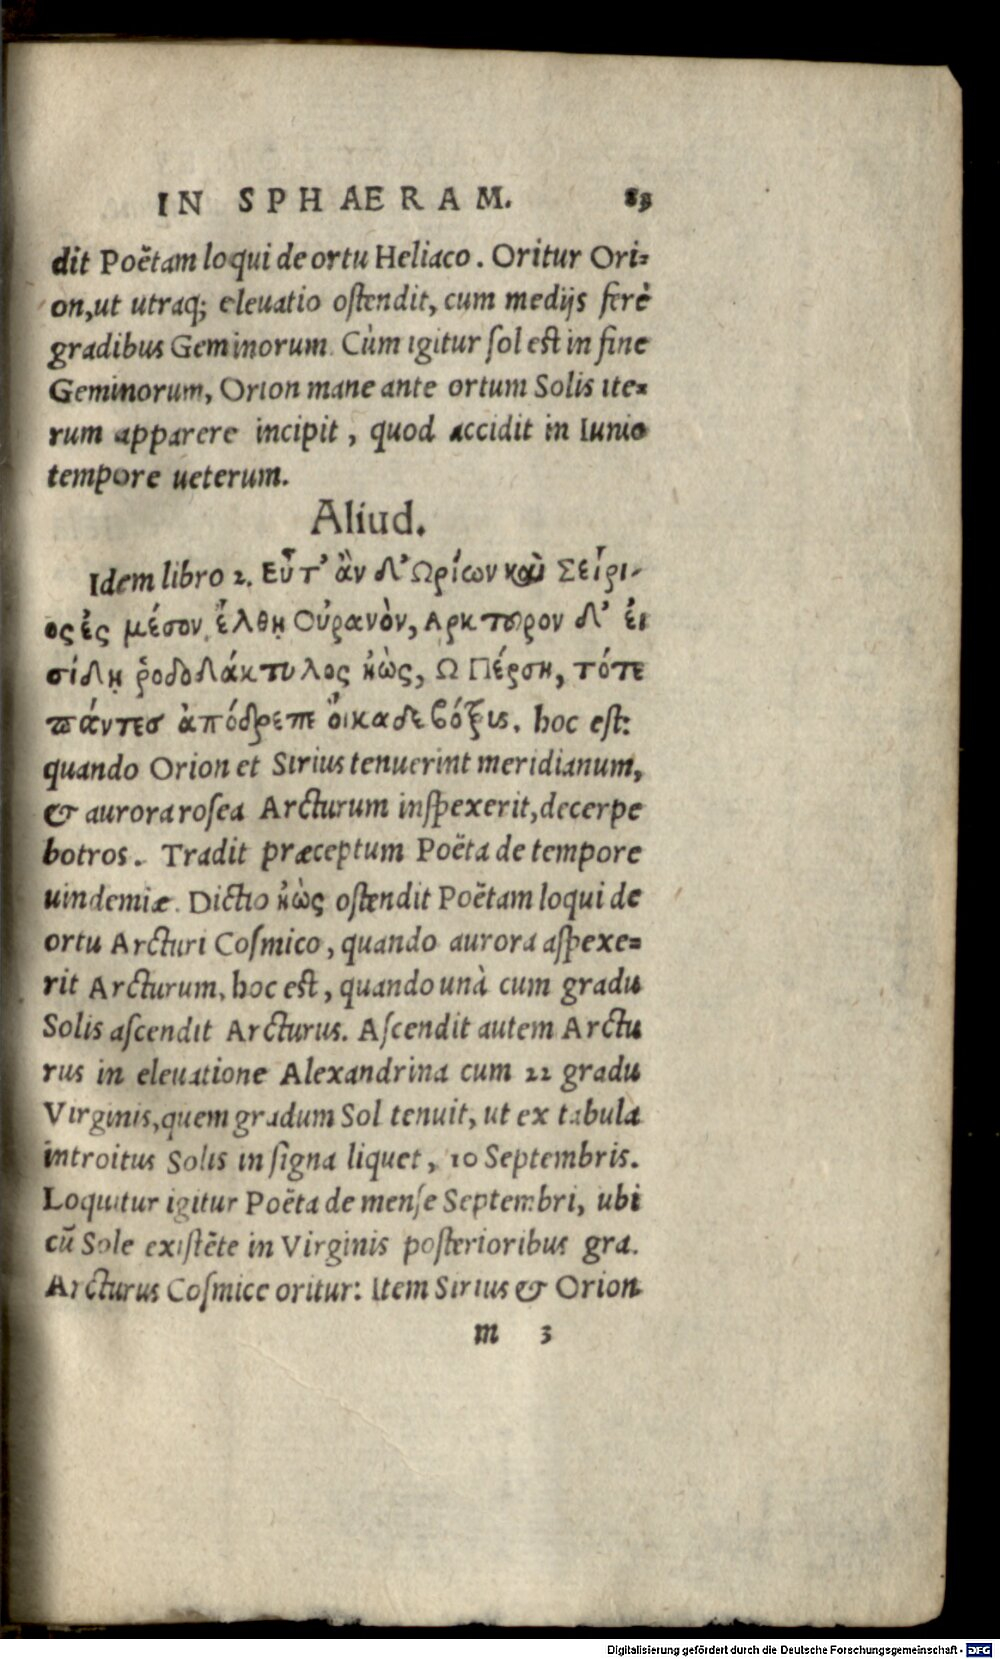 IN SPHAERAM. 89
dit Poëtam loqui de ortu Heliaco. Oritur Ori=
on, ut utraq; eleuatio ostendit, cum medijs ferè
gradibus Geminorum. Cùm igitur sol est in fine
Geminorum, Orion mane ante ortum Solis ite=
rum apparere incipit, quod accidit in Iunio
tempore ueterum.
Aliud.
Idem libro 2. Εὖτ’ ἂν δ’ Ωρίων καὶ Σείρι-
ος ἐς μέσον ἔλθῃ Οὐρανὸν, Αρκτοῦρον δ’ ἐι
σίδῃ ῥοδοδάκτυλος ἠὼς, Ω Πέρση, τότε
πάντεσ ἀπόδρεπε ὄικαδε βότρυς. hoc est:
quando Orion et Sirius tenuerint meridianum,
& aurora rosea Arcturum inspexerit, decerpe
botros. Tradit præceptum Poëta de tempore
uindemiæ. Dictio ἠὼς ostendit Poëtam loqui de
ortu Arcturi Cosmico, quando aurora aspexe=
rit Arcturum, hoc est, quando unà cum gradu
Solis ascendit Arcturus. Ascendit autem Arctu
rus in eleuatione Alexandrina cum 22 gradu
Virginis, quem gradum Sol tenuit, ut ex tabula
introitus Solis in signa liquet, 10 Septembris.
Loquitur igitur Poëta de mense Septembri, ubi
cũ Sole existẽte in Virginis posterioribus gra.
Arcturus Cosmice oritur: Item Sirius & Orion
m 3
Digitalisierung gefördert durch die Deutsche Forschungsgemeinschaft - DFG